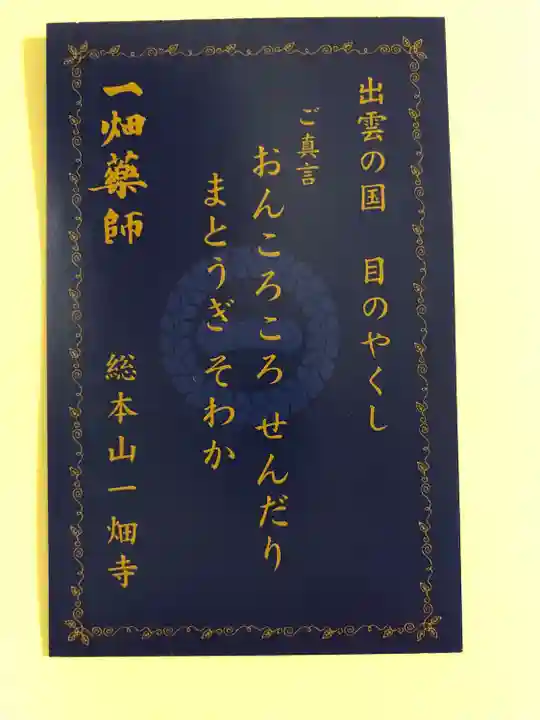 出雲の国 目のやくし
ご真言
おんころころ せんだり
まとうぎ そわか
一畑薬師 総本山一畑寺